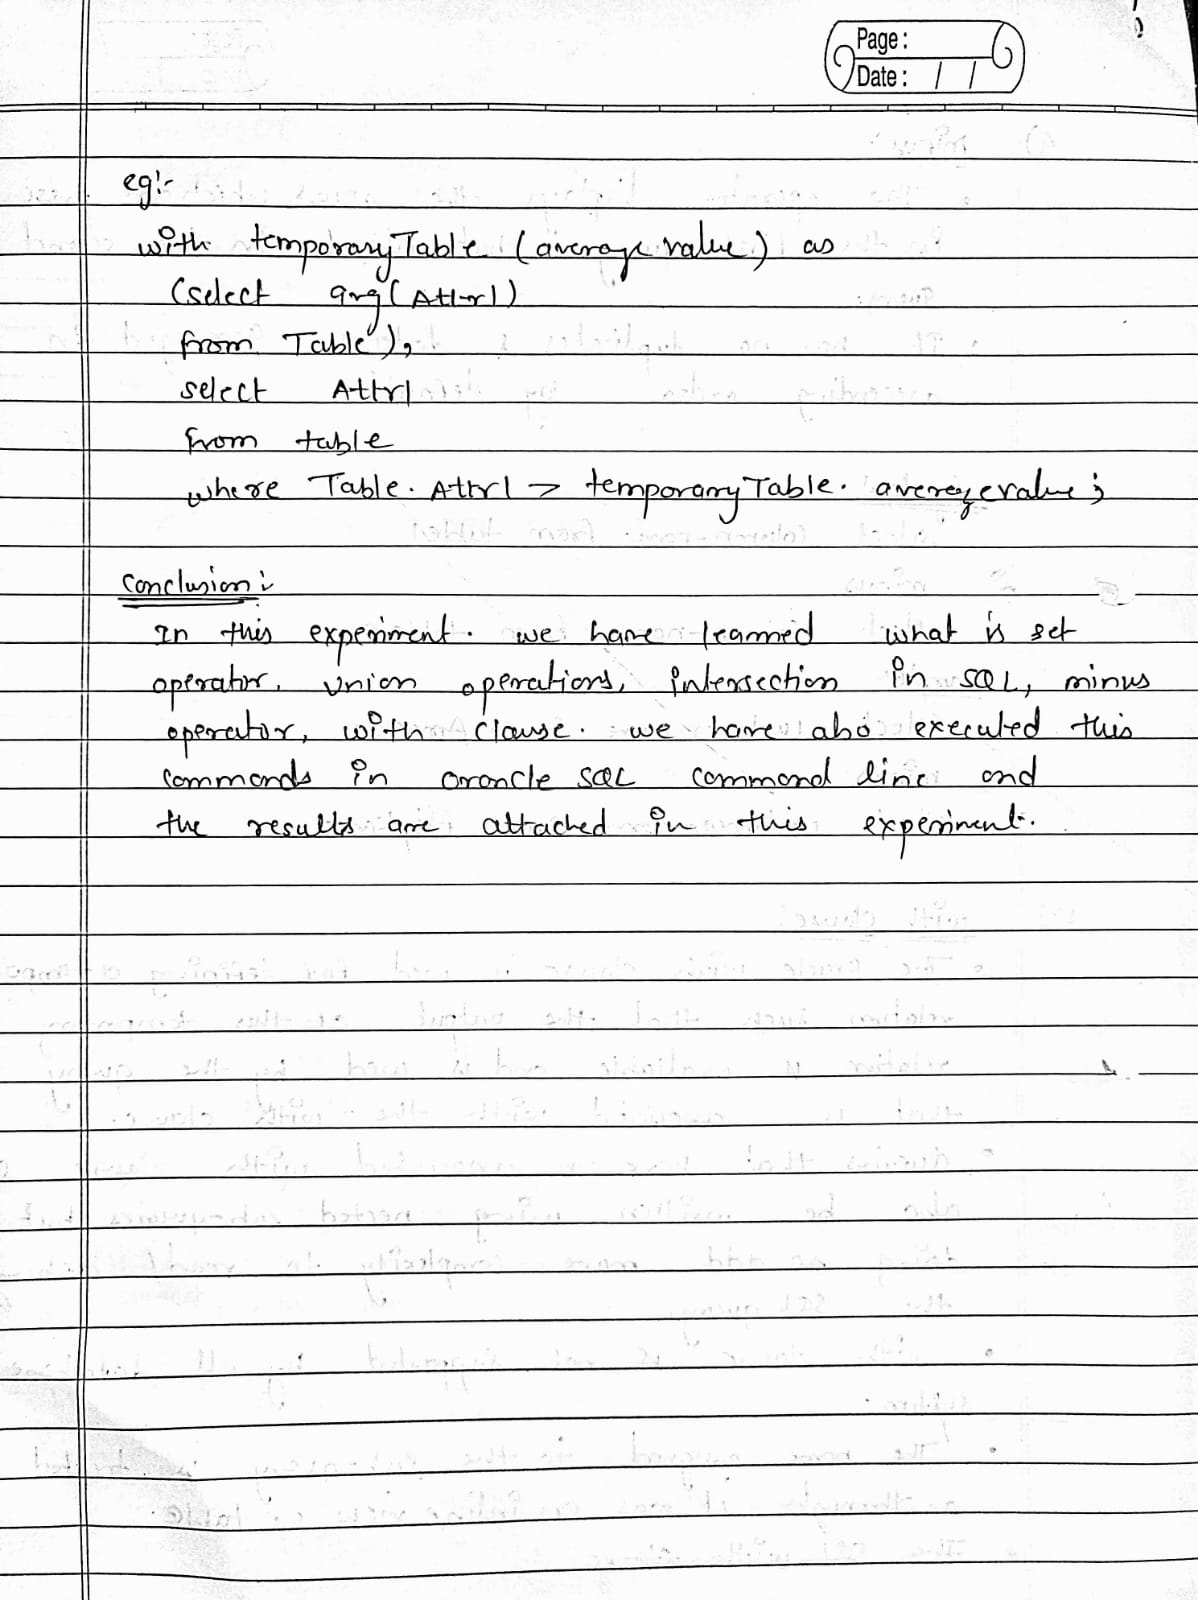 Page:
Date: / /
eg:-
with temporaryTable (average value) as
(select avg(Attr1)
from Table),
select Attr1
from table
where Table. Attr1 > temporaryTable. averegevalue;
Conclusion:
In this experiment. we have learned what is set
operator, union operations, intersection in SQL, minus
operator, with clause. we have also executed this
commands in oroncle SQL command line and
the results are attached in this experiment.